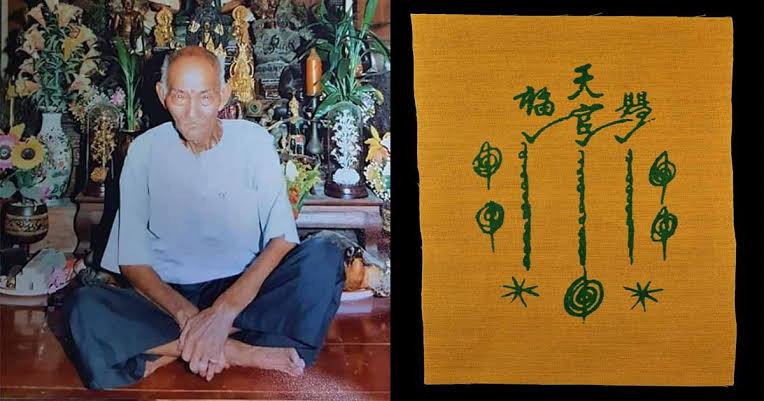 天
福 官 賜